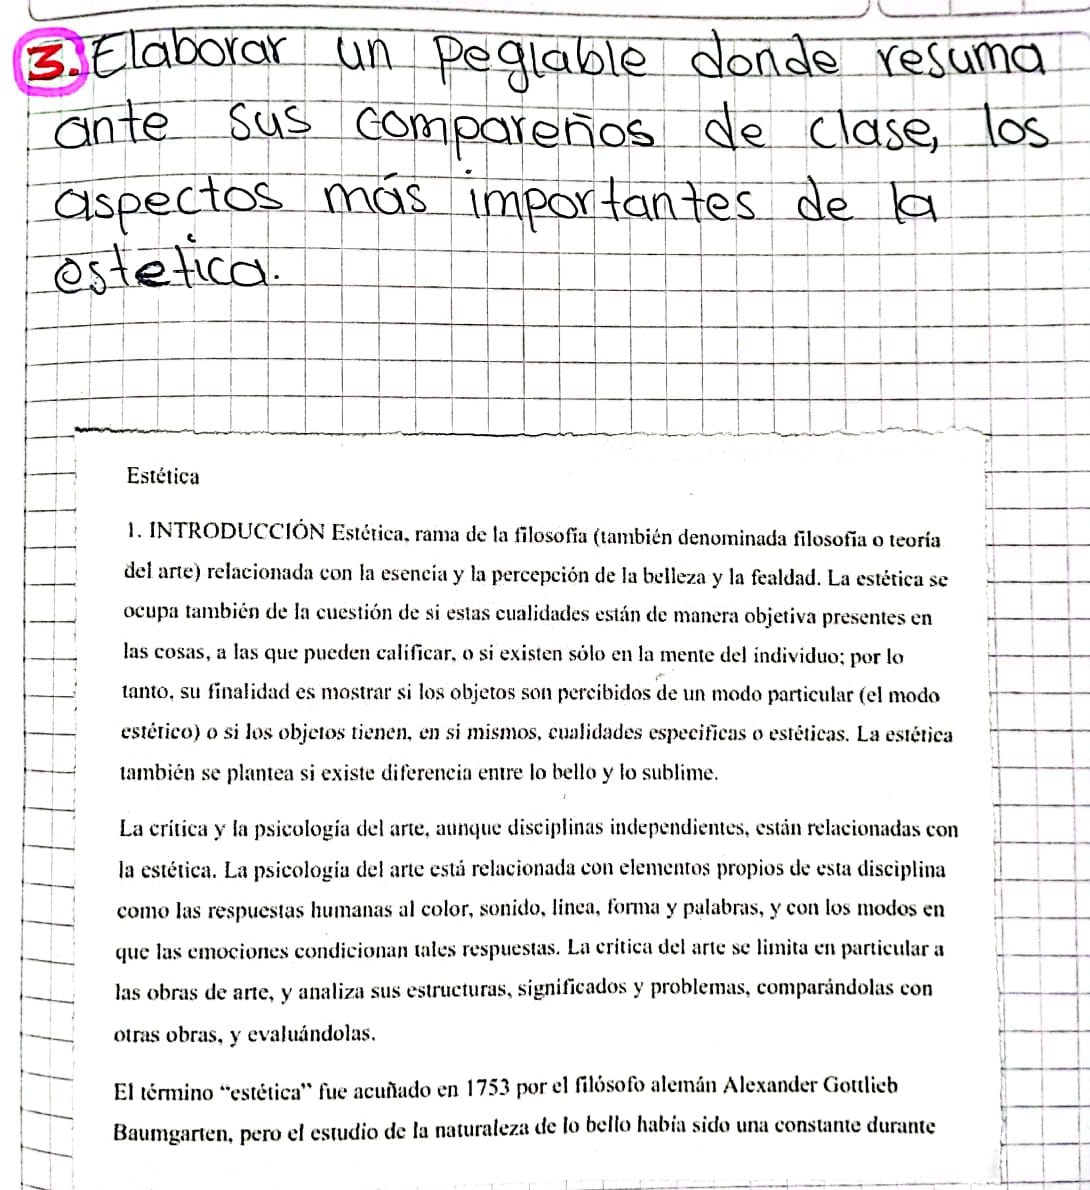 3. Elaborar un Peglable donde resuma
ante sus compareños de clase, los
aspectos más importantes de la
estética.
Estética
1. INTRODUCCIÓN Estética, rama de la filosofía (también denominada filosofía o teoría
del arte) relacionada con la esencia y la percepción de la belleza y la fealdad. La estética se
ocupa también de la cuestión de si estas cualidades están de manera objetiva presentes en
las cosas, a las que pueden calificar, o si existen sólo en la mente del individuo; por lo
tanto, su finalidad es mostrar si los objetos son percibidos de un modo particular (el modo
estérico) o si los objetos tienen, en sí mismos, cualidades específicas o estéticas. La estética
también se plantea si existe diferencia entre lo bello y lo sublime.
La crítica y la psicología del arte, aunque disciplinas independientes, están relacionadas con
la estética. La psicología del arte está relacionada con elementos propios de esta disciplina
como las respuestas humanas al color, sonido, línea, forma y palabras, y con los modos en
que las emociones condicionan tales respuestas. La crítica del arte se limita en particular a
las obras de arte, y analiza sus estructuras, significados y problemas, comparándolas con
otras obras, y evaluándolas.
El término “estética” fue acuñado en 1753 por el filósofo alemán Alexander Gottlieb
Baumgarten, pero el estudio de la naturaleza de lo bello había sido una constante durante